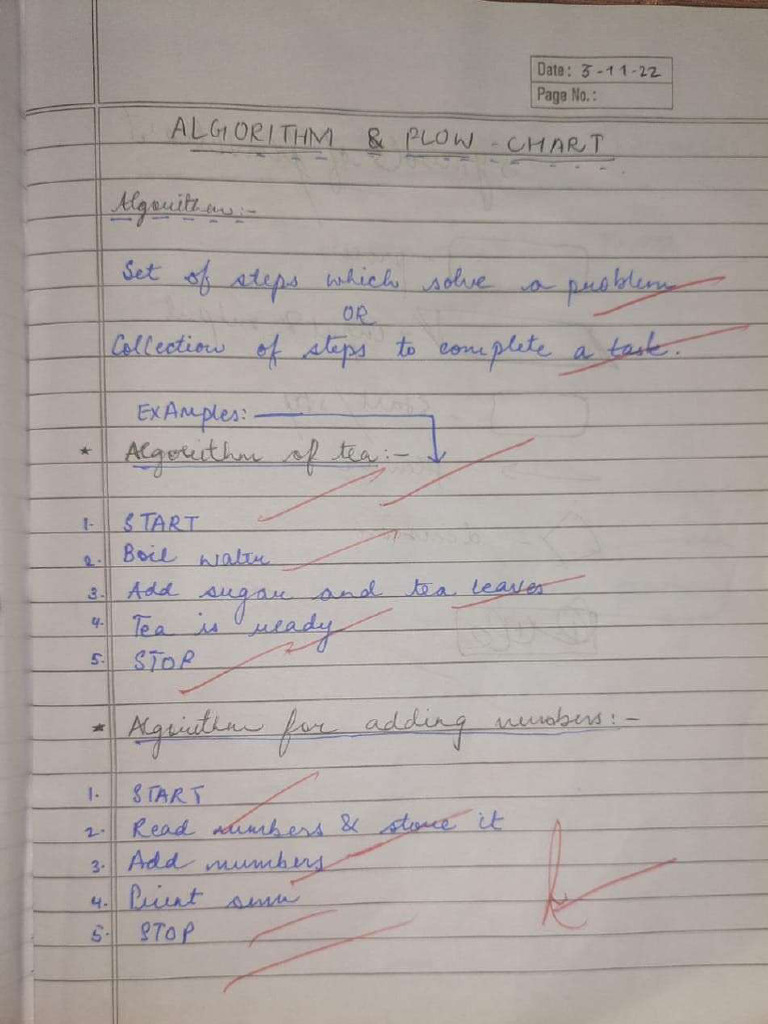 Date: 3-11-22
Page No.:
ALGORITHM & FLOW-CHART
Algorithm:-
Set of steps which solve a problem
OR
Collection of steps to complete a task.
ExAmples:
* Algorithm of tea:-
1. START
2. Boil water
3. Add sugar and tea leaves
4. Tea is ready
5. STOP
* Algorithm for adding numbers:-
1. START
2. Read numbers & store it
3. Add numbers
4. Print sum
5. STOP